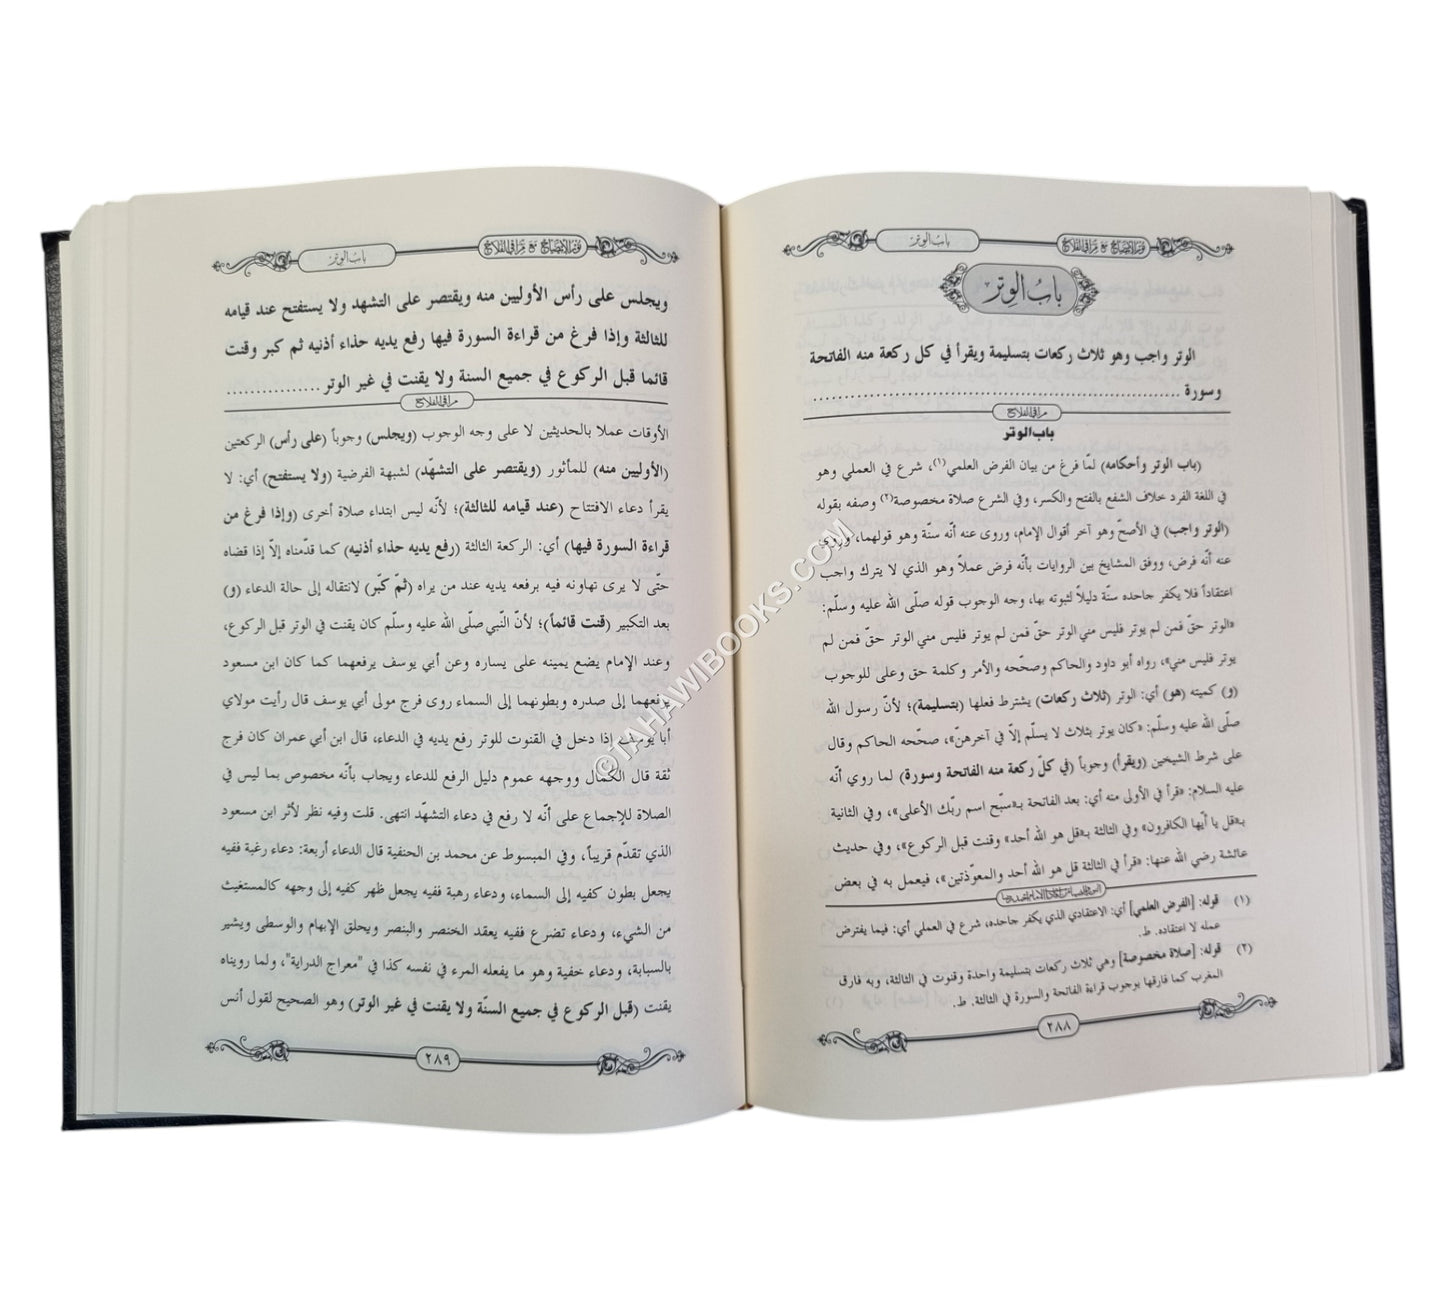 نور الإيضاح مع مراقي الفلاح
باب الوتر
باب الوتر
الوتر واجب وهو ثلاث ركعات بتسليمة ويقرأ في كل ركعة منه الفاتحة
وسورة ............................................................
مراقي الفلاح
باب الوتر
(باب الوتر وأحكامه) لمّا فرغ من بيان الفرض العلمي(١)، شرع في العملي وهو
في اللغة الفرد خلاف الشفع بالفتح والكسر، وفي الشرع صلاة مخصوصة(٢) وصفه بقوله
(الوتر واجب) في الأصحّ وهو آخر أقوال الإمام، وروى عنه أنّه سنّة وهو قولهما، وروى
عنه أنّه فرض، ووفق المشايخ بين الروايات بأنّه فرض عملاً وهو الذي لا يترك واجب
اعتقاداً فلا يكفر جاحده سنّة دليلاً لثبوته بها، وجه الوجوب قوله صلّى الله عليه وسلّم:
«الوتر حقّ فمن لم يوتر فليس مني الوتر حقّ فمن لم يوتر فليس مني الوتر حقّ فمن لم
يوتر فليس مني»، رواه أبو داود والحاكم وصحّحه والأمر وكلمة حق وعلى للوجوب
(و) كميته (هو) أي: الوتر (ثلاث ركعات) يشترط فعلها (بتسليمة)؛ لأنّ رسول الله
صلّى الله عليه وسلّم: «كان يوتر بثلاث لا يسلّم إلاّ في آخرهنّ»، صحّحه الحاكم وقال
على شرط الشيخين (ويقرأ) وجوباً (في كلّ ركعة منه الفاتحة وسورة) لما روي أنّه
عليه السلام: «قرأ في الأولى منه أي: بعد الفاتحة بـ«سبّح اسم ربّك الأعلى»، وفي الثانية
بـ«قل يا أيّها الكافرون» وفي الثالثة بـ«قل هو الله أحد» وقنت قبل الركوع»، وفي حديث
عائشة رضي الله عنها: «قرأ في الثالثة قل هو الله أحد والمعوّذتين»، فيعمل به في بعض
(١) قوله: [الفرض العلمي] أي: الاعتقادي الذي يكفر جاحده، شرع في العملي أي: فيما يفترض
عمله لا اعتقاده. ط.
(٢) قوله: [صلاة مخصوصة] وهي ثلاث ركعات بتسليمة واحدة وقنوت في الثالثة، وبه فارق
المغرب كما فارقها بوجوب قراءة الفاتحة والسورة في الثالثة. ط.
٢٨٨
نور الإيضاح مع مراقي الفلاح
باب الوتر
ويجلس على رأس الأوليين منه ويقتصر على التشهد ولا يستفتح عند قيامه
للثالثة وإذا فرغ من قراءة السورة فيها رفع يديه حذاء أذنيه ثم كبر وقنت
قائما قبل الركوع في جميع السنة ولا يقنت في غير الوتر ...............
مراقي الفلاح
الأوقات عملا بالحديثين لا على وجه الوجوب (ويجلس) وجوباً (على رأس) الركعتين
(الأوليين منه) للمأثور (ويقتصر على التشهّد) لشبهة الفرضية (ولا يستفتح) أي: لا
يقرأ دعاء الافتتاح (عند قيامه للثالثة)؛ لأنّه ليس ابتداء صلاة أخرى (وإذا فرغ من
قراءة السورة فيها) أي: الركعة الثالثة (رفع يديه حذاء أذنيه) كما قدّمناه إلاّ إذا قضاه
حتّى لا يرى تهاونه فيه برفعه يديه عند من يراه (ثمّ كبّر) لانتقاله إلى حالة الدعاء (و)
بعد التكبير (قنت قائماً)؛ لأنّ النّبي صلّى الله عليه وسلّم كان يقنت في الوتر قبل الركوع،
وعند الإمام يضع يمينه على يساره وعن أبي يوسف يرفعهما كما كان ابن مسعود
يرفعهما إلى صدره وبطونهما إلى السماء روى فرج مولى أبي يوسف قال رأيت مولاي
أبا يوسف إذا دخل في القنوت للوتر رفع يديه في الدعاء، قال ابن أبي عمران كان فرج
ثقة قال الكمال ووجهه عموم دليل الرفع للدعاء ويجاب بأنّه مخصوص بما ليس في
الصلاة للإجماع على أنّه لا رفع في دعاء التشهّد انتهى. قلت وفيه نظر لأثر ابن مسعود
الذي تقدّم قريباً، وفي المبسوط عن محمد بن الحنفية قال الدعاء أربعة: دعاء رغبة ففيه
يجعل بطون كفيه إلى السماء، ودعاء رهبة ففيه يجعل ظهر كفيه إلى وجهه كالمستغيث
من الشيء، ودعاء تضرع ففيه يعقد الخنصر والبنصر ويحلق الإبهام والوسطى ويشير
بالسبابة، ودعاء خفية وهو ما يفعله المرء في نفسه كذا في "معراج الدراية"، ولما رويناه
يقنت (قبل الركوع في جميع السنّة ولا يقنت في غير الوتر) وهو الصحيح لقول أنس
٢٨٩
©TAHAWIBOOKS.COM